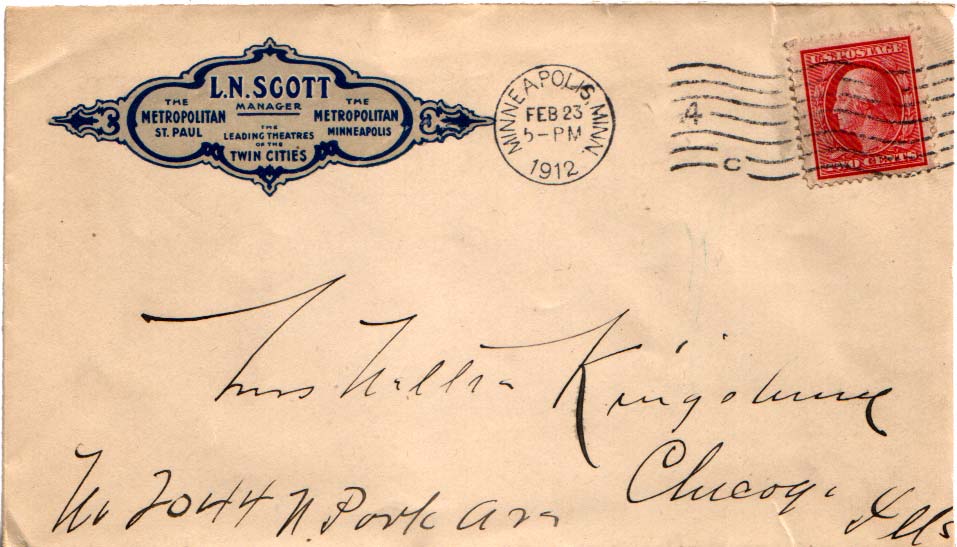 L.N. SCOTT
MANAGER
THE METROPOLITAN ST. PAUL
THE LEADING THEATRES OF THE TWIN CITIES
THE METROPOLITAN MINNEAPOLIS
MINNEAPOLIS MINN
FEB 23
5-PM
1912
4
C
U.S. POSTAGE
TWO CENTS
Kingsbury
Chicago
Ills
No 2044 N. Park Ave